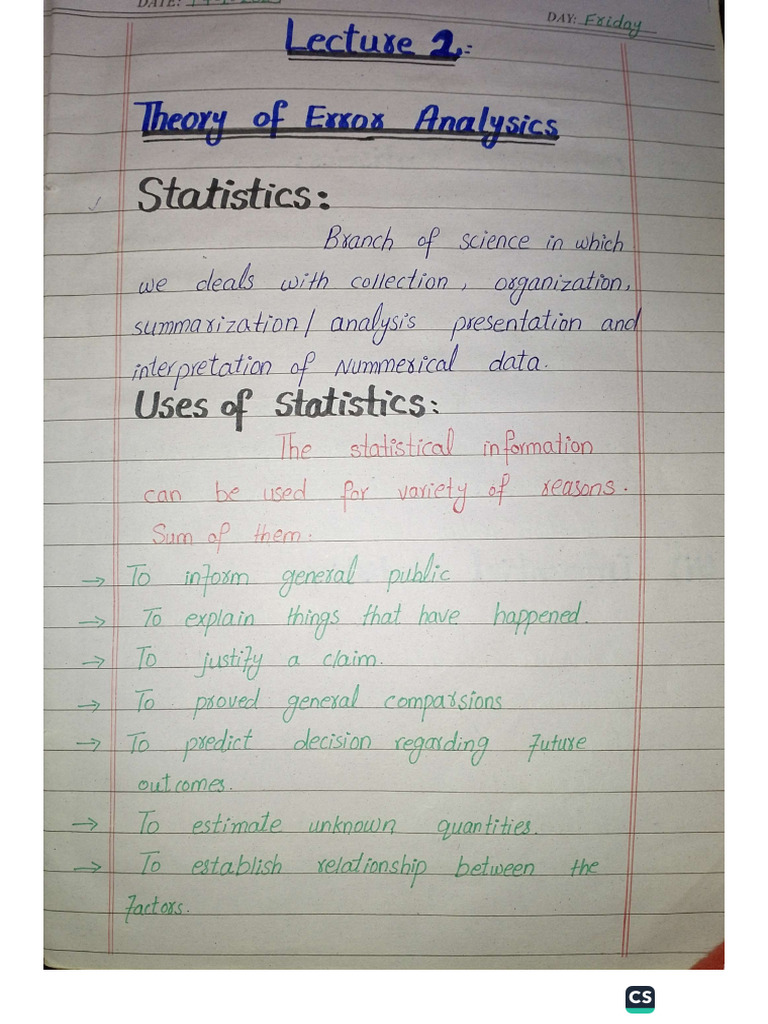 DATE:
DAY: Friday
Lecture 2:
Theory of Error Analysics
Statistics:
Branch of science in which
we deals with collection, organization,
summarization/ analysis presentation and
interpretation of Nummerical data.
Uses of Statistics:
The statistical information
can be used for variety of reasons.
Sum of them:
→ To inform general public
→ To explain things that have happened.
→ To justify a claim.
→ To proved general comparsions
→ To predict decision regarding future
outcomes.
→ To estimate unknown quantities.
→ To establish relationship between the
factors.
CS